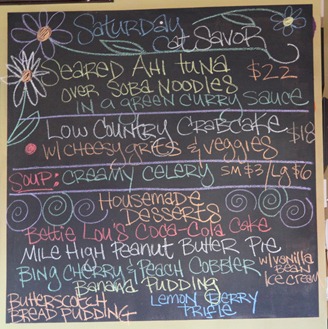 Saturday
at Savor
Seared Ahi tuna
over Soba Noodles
in a green curry sauce
$22
Low Country Crabcake
w/ cheesy grits & veggies
$18
Soup: Creamy Celery Sm $3/Lg $6
Housemade
Desserts
Bettie Lou's Coca-Cola Cake
Mile High Peanut Butter Pie
Bing Cherry & Peach Cobbler
w/vanilla
Bean
Ice Cream
Banana Pudding
Butterscotch
Bread Pudding
Lemon Berry
Trifle